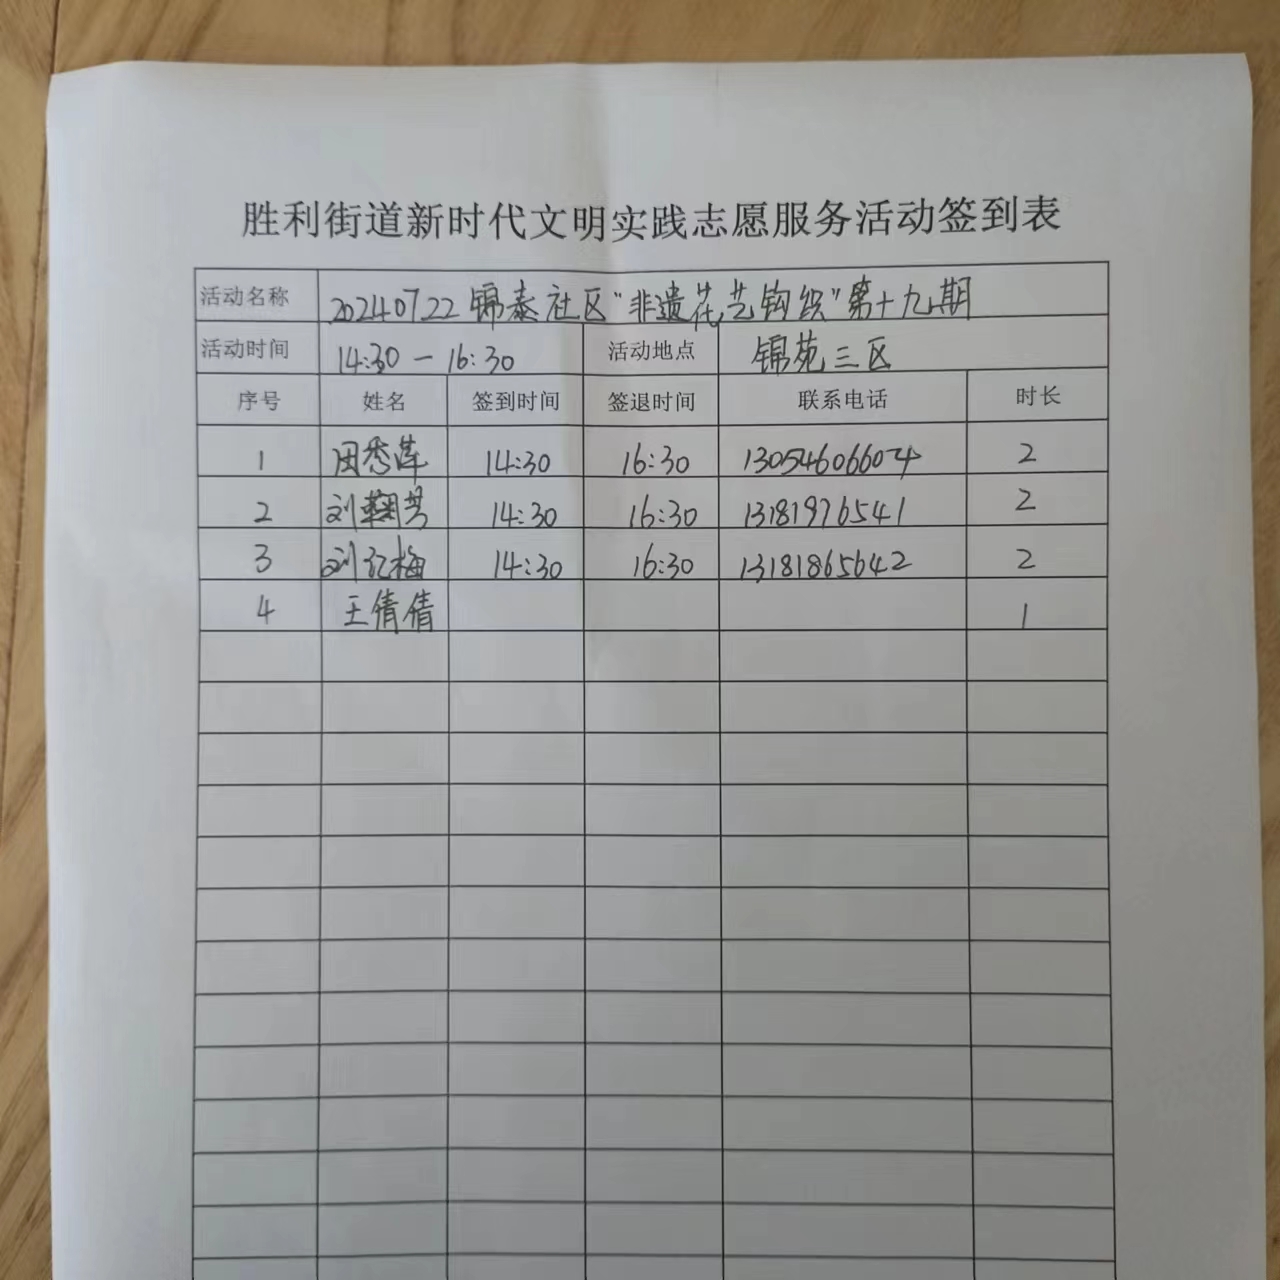 胜利街道新时代文明实践志愿服务活动签到表
活动名称 20240722锦泰社区"非遗花艺钩织"第十九期
活动时间 14:30-16:30 活动地点 锦苑三区
序号 姓名 签到时间 签退时间 联系电话 时长
1 田秀莲 14:30 16:30 13054606604 2
2 刘鞠芳 14:30 16:30 13181976541 2
3 刘红梅 14:30 16:30 13181865642 2
4 王倩倩 1